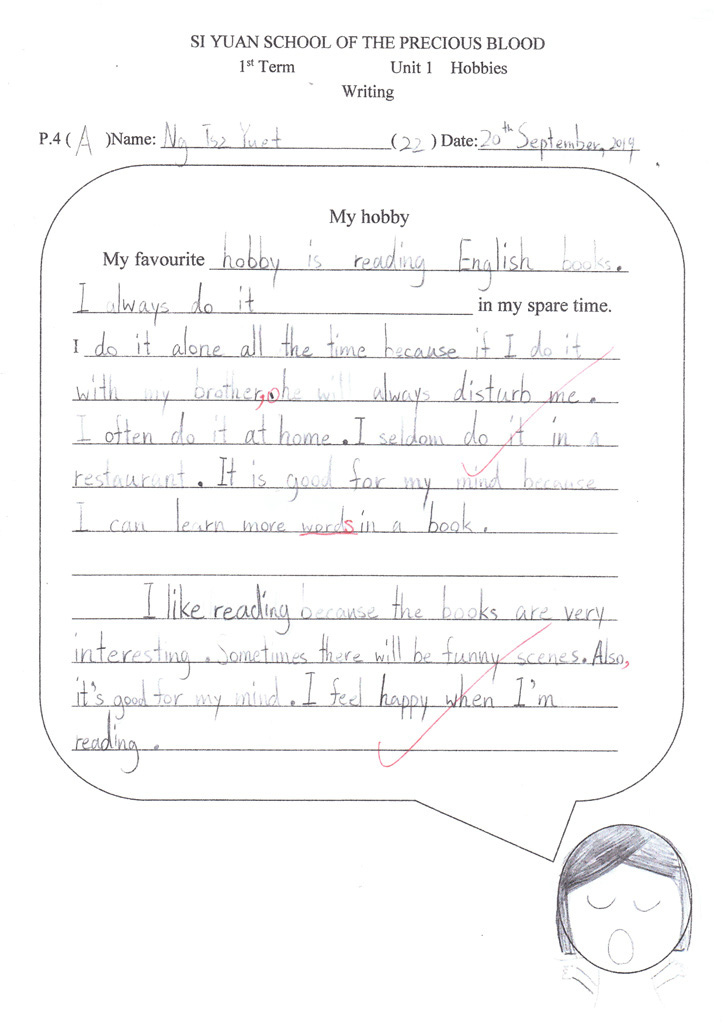 SI YUAN SCHOOL OF THE PRECIOUS BLOOD
1st Term Unit 1 Hobbies
Writing
P.4 ( A )Name: Ng Tsz Yuet ( 22 ) Date: 20th September, 2019
My hobby
My favourite hobby is reading English books.
I always do it in my spare time.
I do it alone all the time because if I do it
with my brother, he will always disturb me.
I often do it at home. I seldom do it in a
restaurant. It is good for my mind because
I can learn more words in a book.
I like reading because the books are very
interesting. Sometimes there will be funny scenes. Also,
it's good for my mind. I feel happy when I'm
reading.